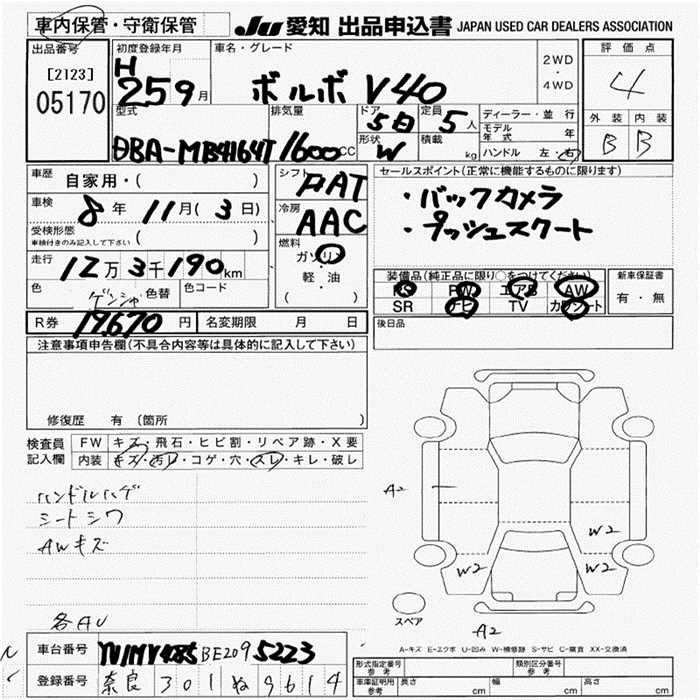 車内保管・守衛保管
JU 愛知 出品申込書 JAPAN USED CAR DEALERS ASSOCIATION
出品番号
[2123]
05170
初度登録年月
H
25 9月
車名・グレード
ボルボ V40
2WD
・
4WD
評価点
4
外装 内装
B B
型式
DBA-MB4164T
排気量
1600cc
ドア
5日
定員
5人
形状
W
積載
kg
ディーラー・並行
モデル年式 年
ハンドル 左・右
車歴
自家用・( )
車検
8年 11月( 3日)
受検形態
車検付きのみ記入して下さい ( )
走行
12万 3千 190km
色
色替
色コード
シフト
FAT
冷房
AAC
燃料
ガソリン
軽・油
( )
セールスポイント(正常に機能するものに限ります)
・バックカメラ
・プッシュスタート
装備品(純正品に限り○をつけてください)
PW エアB AW
SR ナビ TV カワシート
新車保証書
有・無
R券 19,670円
名変期限 月 日
後日品
注意事項申告欄(不具合内容等は具体的に記入して下さい)
修復歴 有 (箇所 )
検査員
記入欄
FW キズ・飛石・ヒビ割・リペア跡・X要
内装 キズ・汚レ・コゲ・穴・スレ・キレ・破レ
ハンドルハゲ
シートシワ
AWキズ
各AU
A2
W2
W2
W2
スペア
A2
A-キズ E-エクボ U-凹み W-補修跡 S-サビ C-腐食 XX-交換済
車台番号
5223
登録番号
奈良 301 ぬ 9614
形式指定番号
参考
類別区分番号
参考
車庫証明用
参考
長さ cm
幅 cm
高さ cm